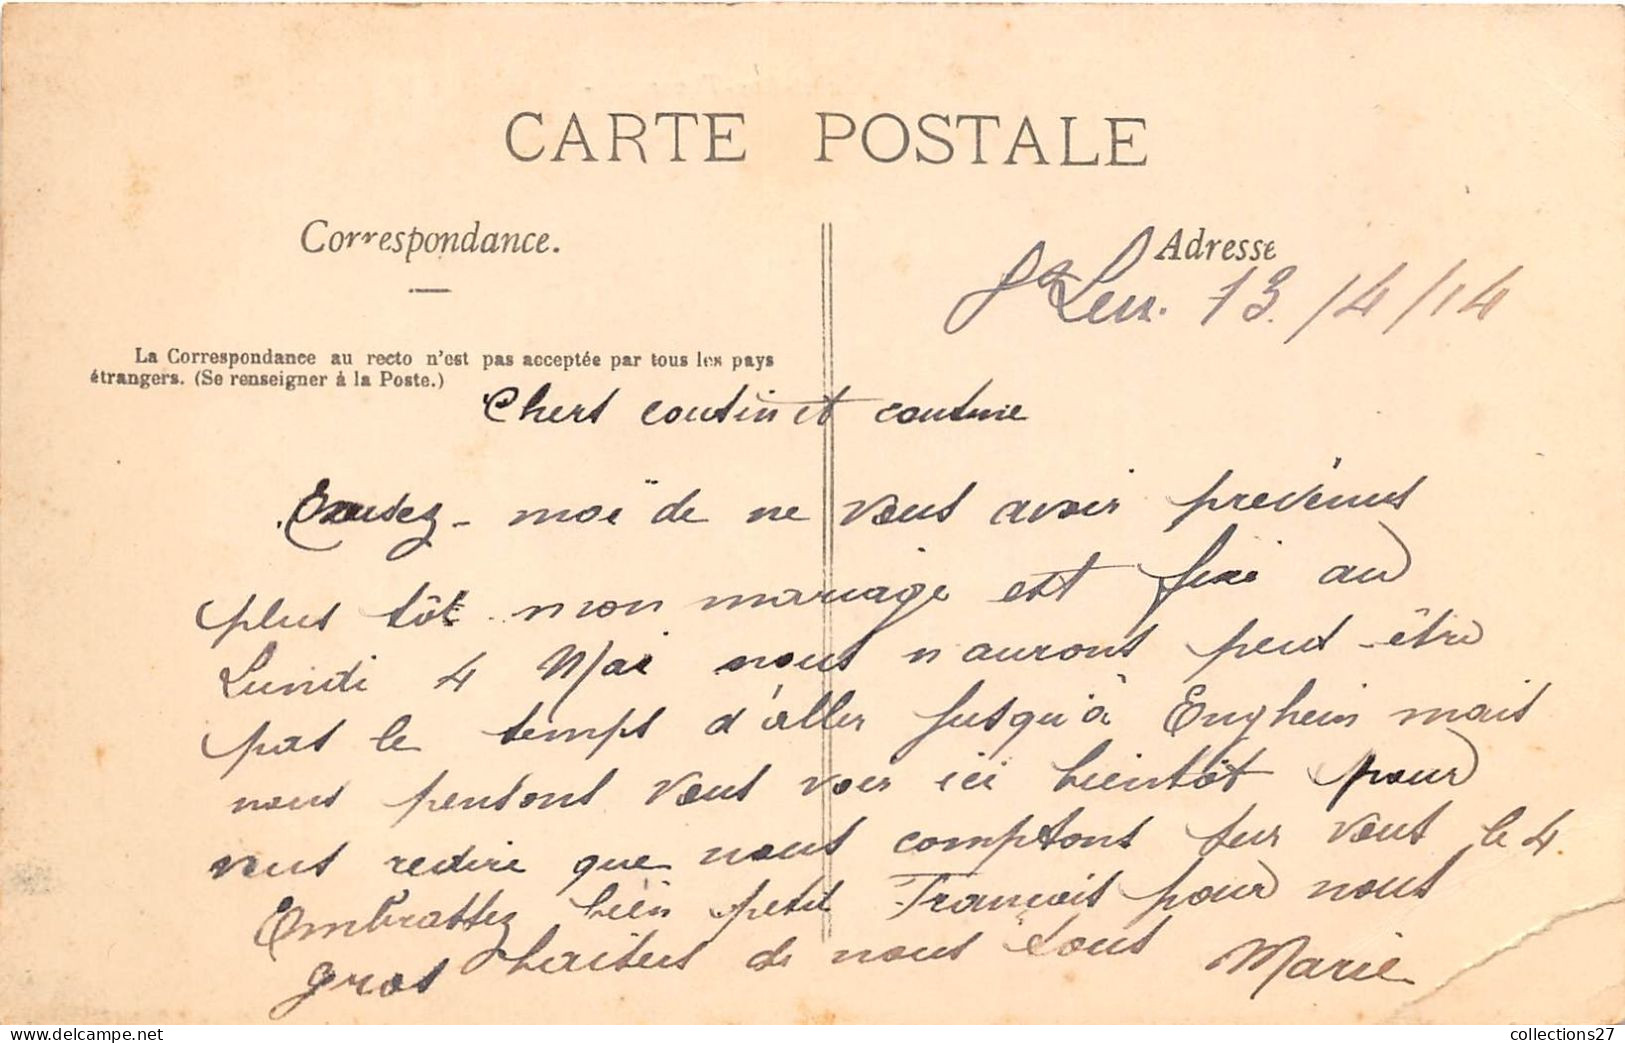 CARTE POSTALE
Correspondance.
Adresse
St Leu. 13/4/14
La Correspondance au recto n'est pas acceptée par tous les pays
étrangers. (Se renseigner à la Poste.)
Chers cousin et cousine
Excusez-moi de ne vous avoir prévenus
plus tôt mon mariage est fixé au
Lundi 4 Mai nous n'aurons peut-être
pas le temps d'aller jusqu'à Enghein mais
nous pensons vous voir ici bientôt pour
vous redire que nous comptons sur vous le 4.
Embrassez bien petit François pour nous
Gros baisers de nous tous Marie
collections27